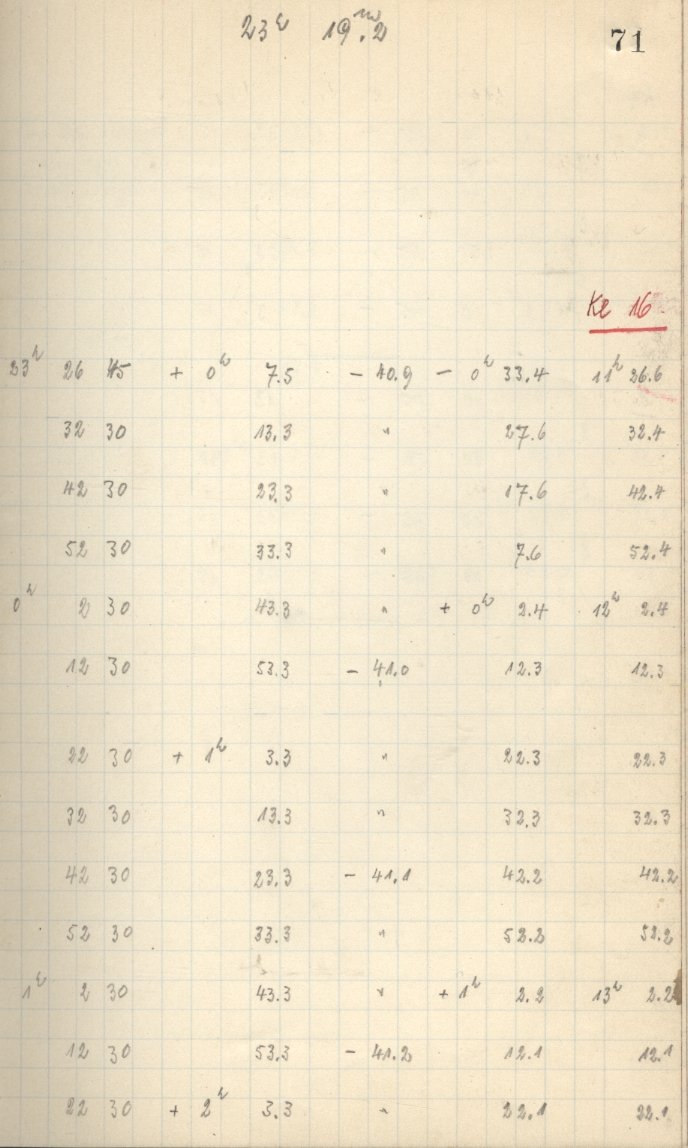 23ʰ 19ᵐ.2
71
Ke 16
23ʰ 26 45 + 0ʰ 7.5 - 40.9 - 0ʰ 33.4 11ʰ 26.6
32 30 13.3 " 27.6 32.4
42 30 23.3 " 17.6 42.4
52 30 33.3 " 7.6 52.4
0ʰ 2 30 43.3 " + 0ʰ 2.4 12ʰ 2.4
12 30 53.3 - 41.0 12.3 12.3
22 30 + 1ʰ 3.3 " 22.3 22.3
32 30 13.3 " 32.3 32.3
42 30 23.3 - 41.1 42.2 42.2
52 30 33.3 " 52.2 52.2
1ʰ 2 30 43.3 " + 1ʰ 2.2 13ʰ 2.2
12 30 53.3 - 41.2 12.1 12.1
22 30 + 2ʰ 3.3 " 22.1 22.1